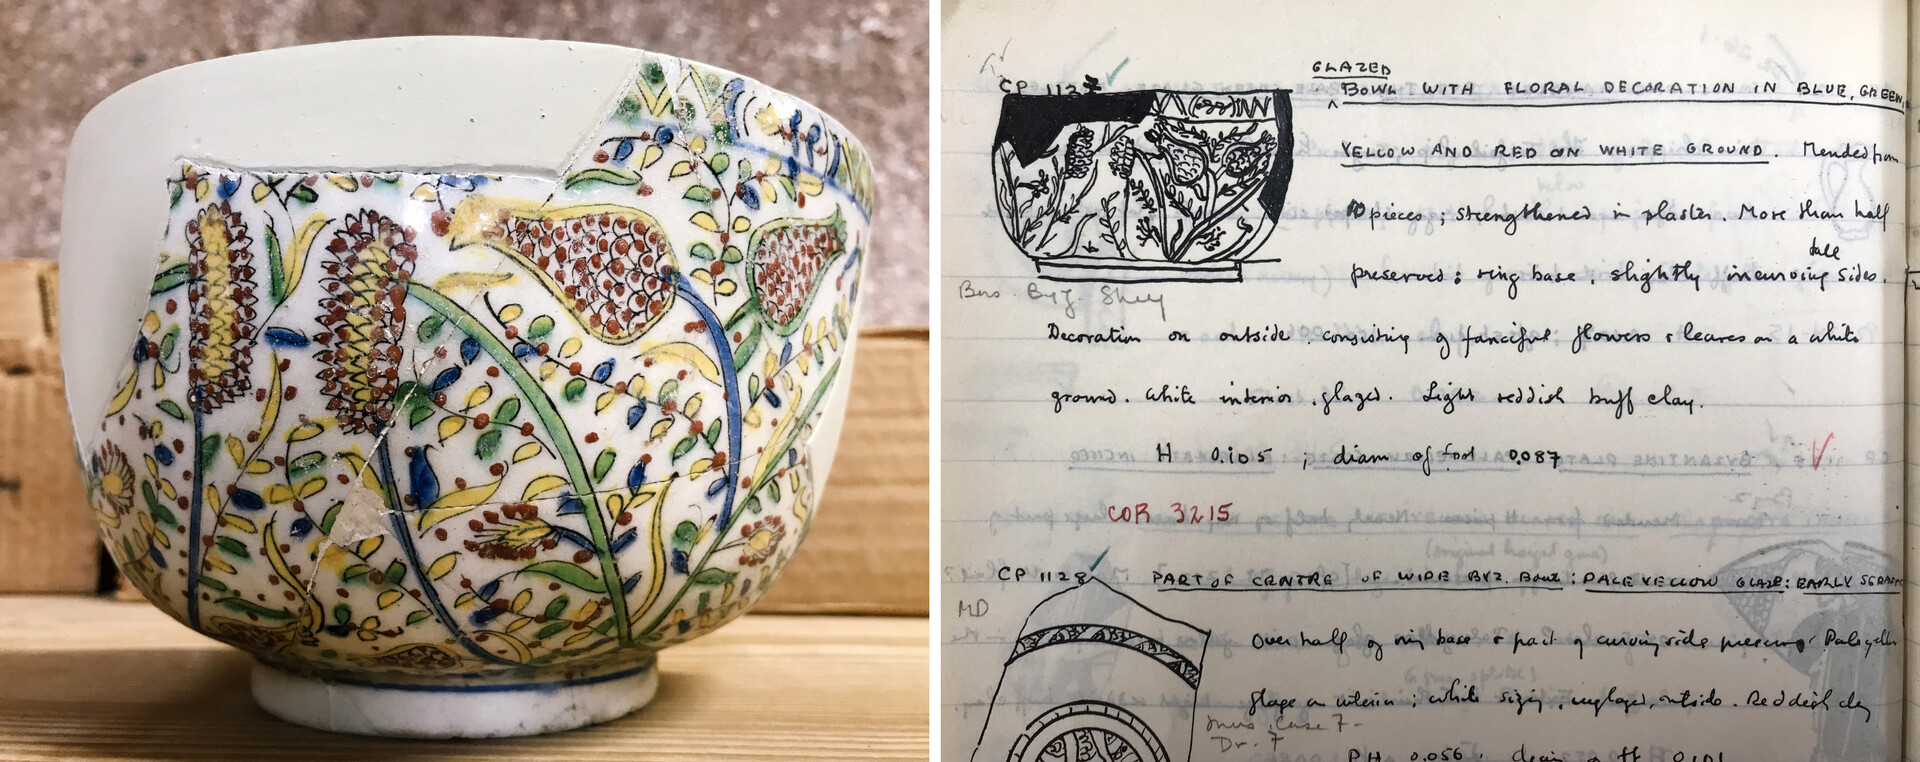 CP 1127
GLAZED
BOWL WITH FLORAL DECORATION IN BLUE, GREEN,
YELLOW AND RED ON WHITE GROUND. Mended from
10 pieces; strengthened in plaster. More than half
tall
preserved: ring base, slightly incurving sides.
Byz.
Decoration on outside, consisting of fanciful flowers & leaves on a white
ground. White interior, glazed. Light reddish buff clay.
H 0.105 ; diam of foot 0.087
COR 3215
CP 1128
PART OF CENTRE OF WIDE BYZ. Bowl: PALE YELLOW GLAZE: EARLY SGRAFF
MD
Over half of ring base & part of curving side preserv. Pale yellow
glaze on interior; white sizing, unglazed, outside. Reddish clay
Case 7-
Dr. 7
PH 0.056 ; diam of ft 0.101